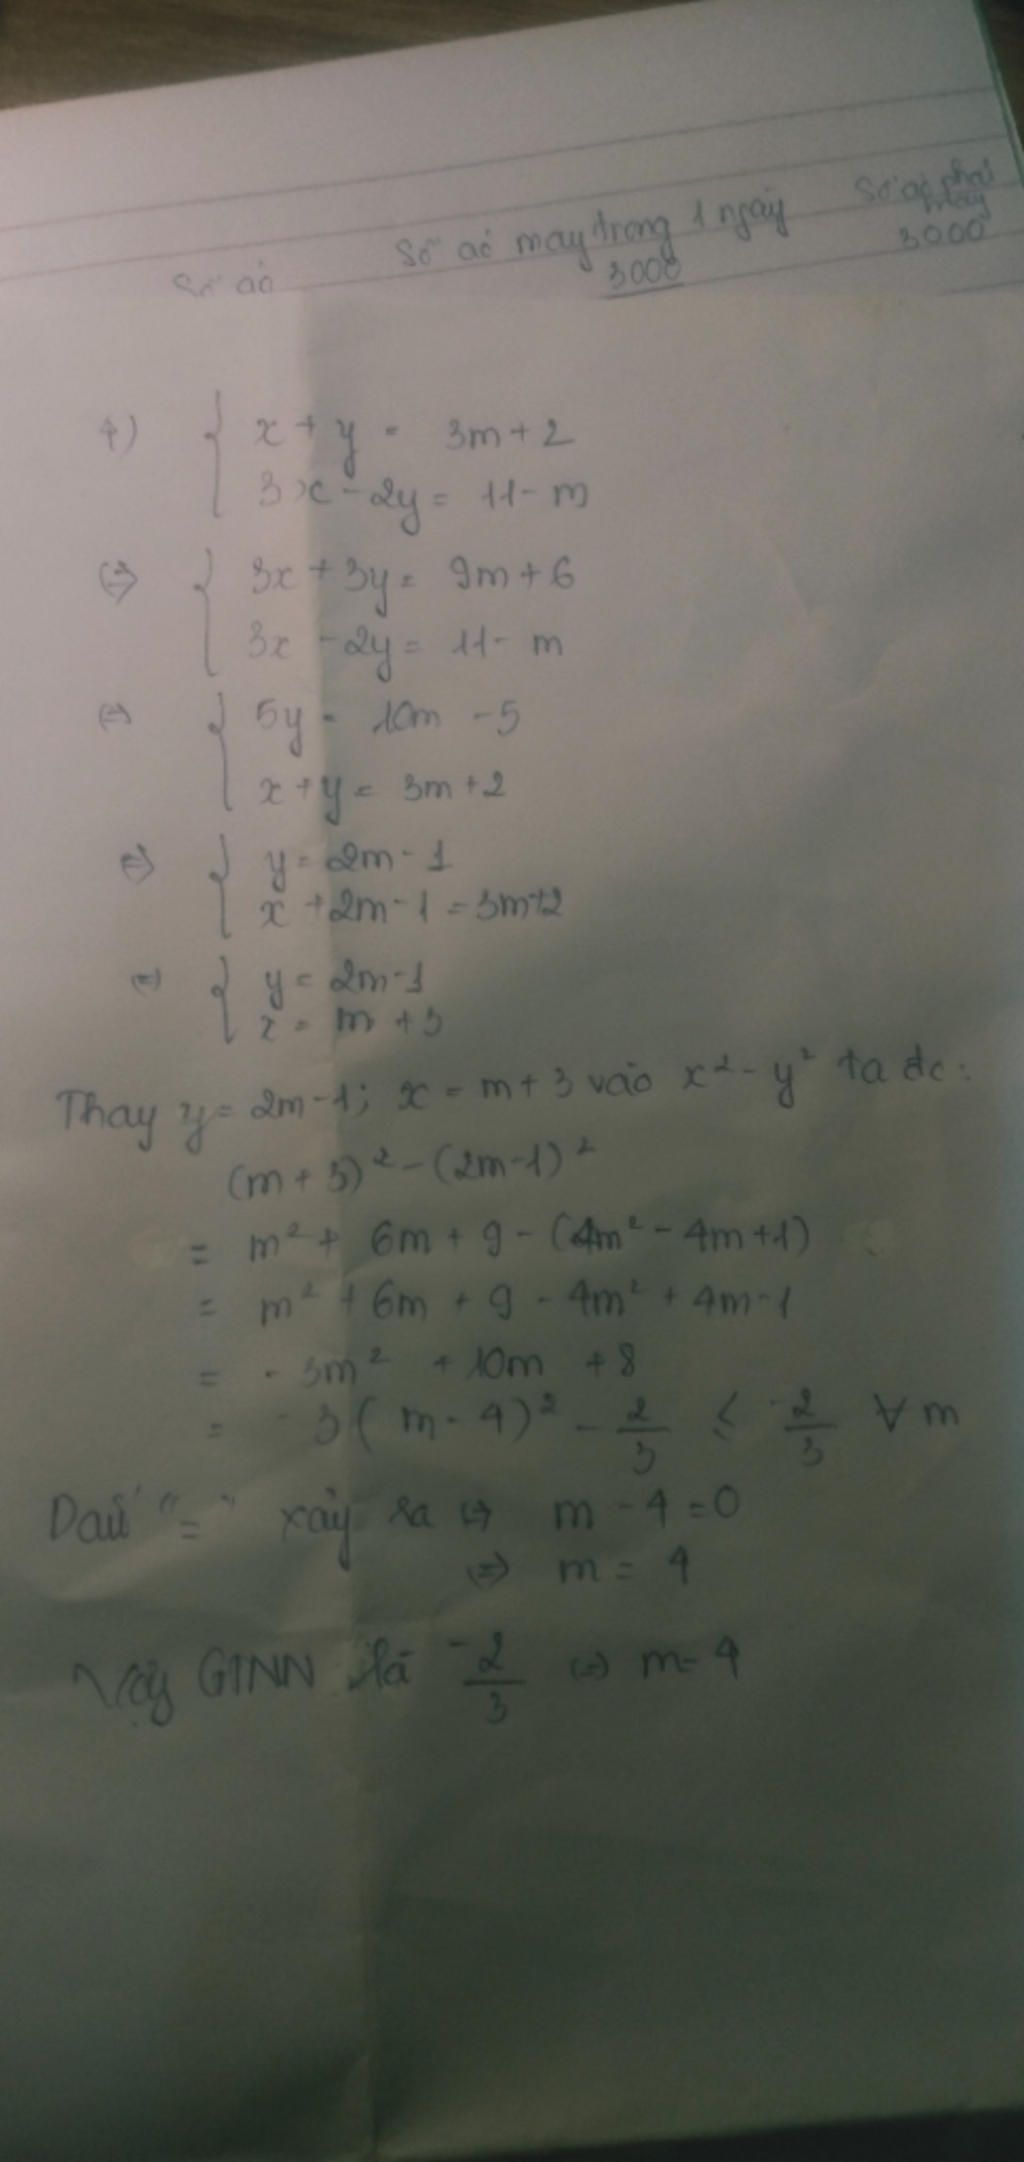 Số áo phải
may
Số áo may trong 1 ngày
3000
3000
Số áo
4) { x + y = 3m + 2
3x - 2y = 11 - m
⇔ { 3x + 3y = 9m + 6
3x - 2y = 11 - m
⇔ { 5y = 10m - 5
x + y = 3m + 2
⇔ { y = 2m - 1
x + 2m - 1 = 3m + 2
⇔ { y = 2m - 1
x = m + 3
Thay y = 2m - 1; x = m + 3 vào x² - y² ta đc:
(m + 3)² - (2m - 1)²
= m² + 6m + 9 - (4m² - 4m + 1)
= m² + 6m + 9 - 4m² + 4m - 1
= - 3m² + 10m + 8
= - 3(m - 4)² - 2/3 ≤ -2/3 ∀ m
Dấu "=" xảy ra ⇔ m - 4 = 0
⇔ m = 4
Vậy GTNN là -2/3 ⇔ m = 4